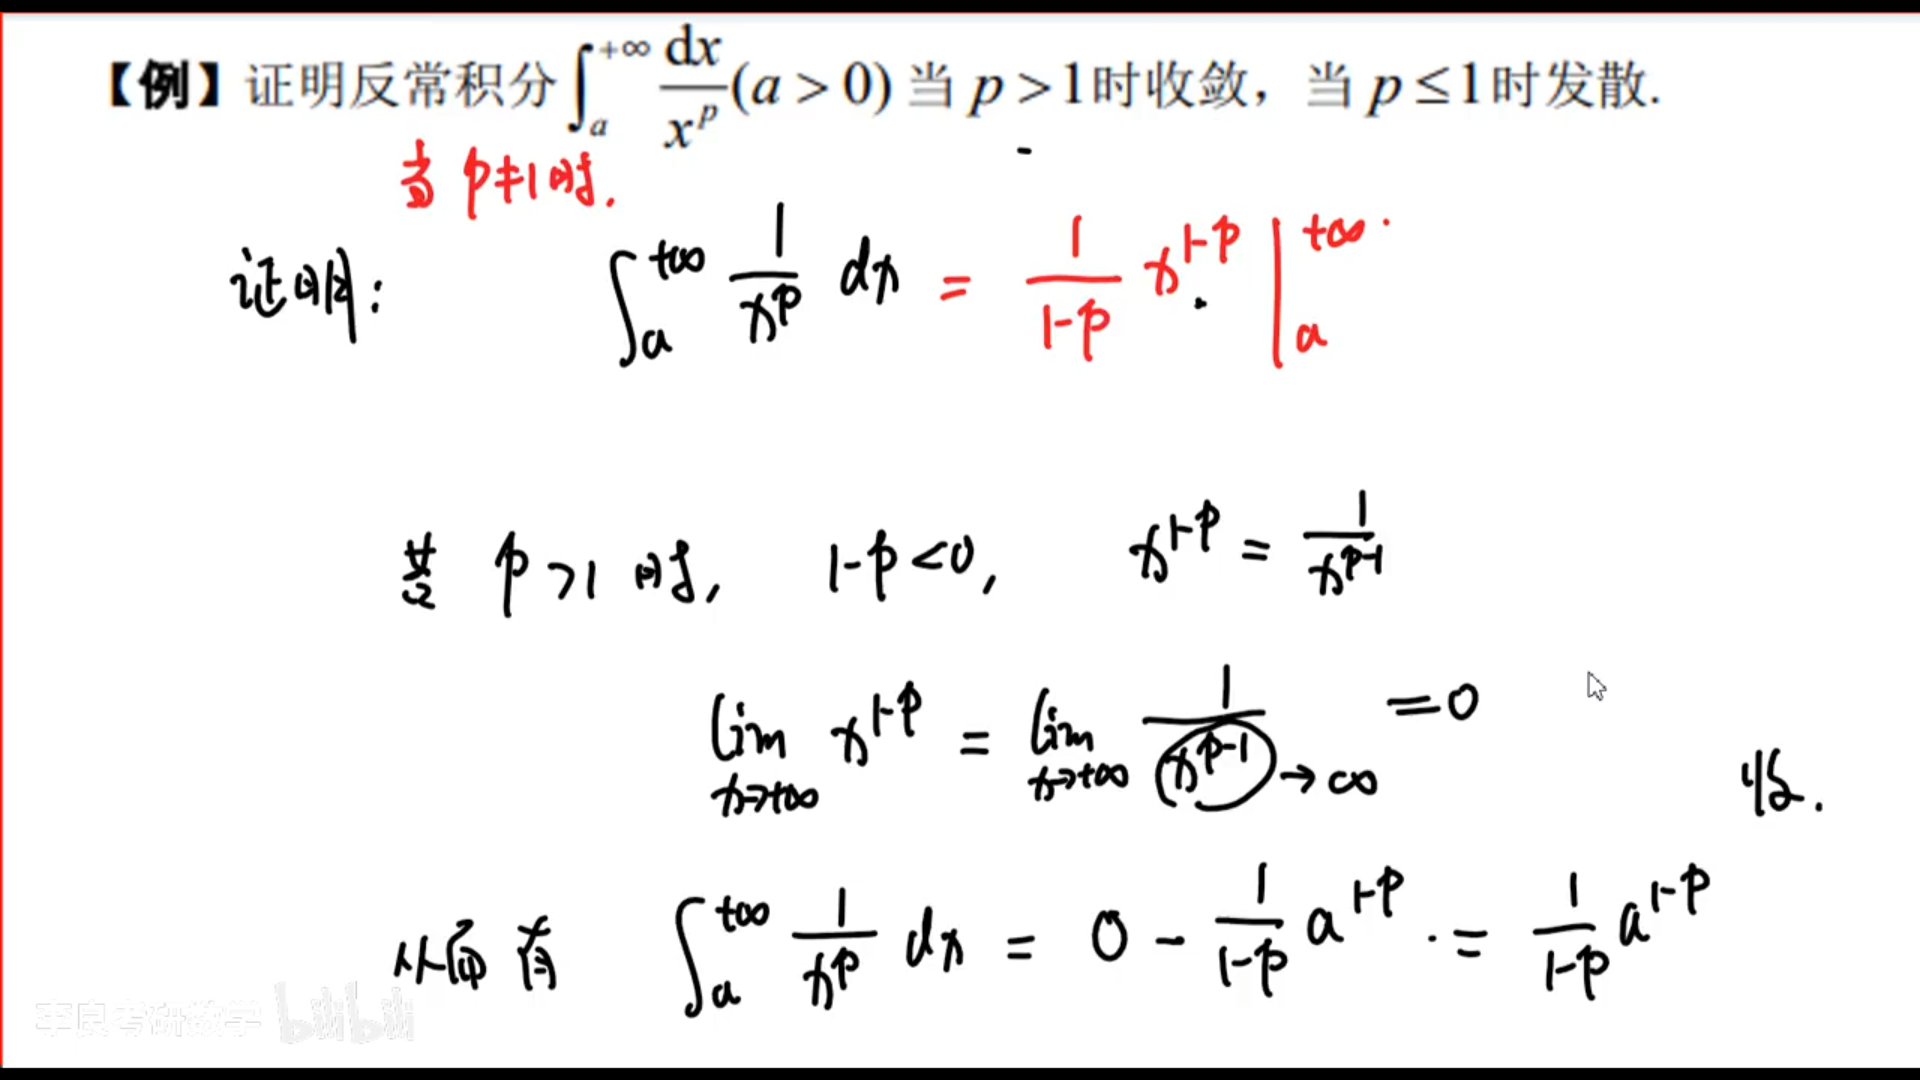 【例】证明反常积分∫_a^{+∞} dx/x^p (a > 0) 当 p > 1时收敛，当 p ≤ 1时发散.
当 p≠1时.
证明: ∫_a^{+∞} 1/x^p dx = 1/(1-p) x^{1-p} |_a^{+∞}.
若 p>1 时, 1-p<0, x^{1-p} = 1/x^{p-1}
lim_{x→+∞} x^{1-p} = lim_{x→+∞} 1/x^{p-1} → ∞ =0
收.
从而有 ∫_a^{+∞} 1/x^p dx = 0 - 1/(1-p) a^{1-p}. = 1/(1-p) a^{1-p}
李良考研数学 bilibili